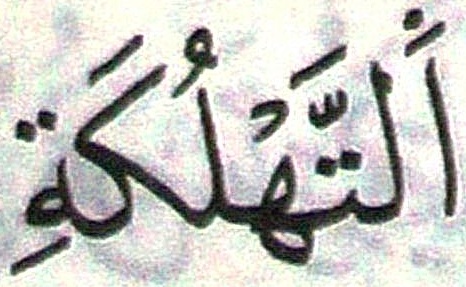 اَلتَّهْلُكَةِ